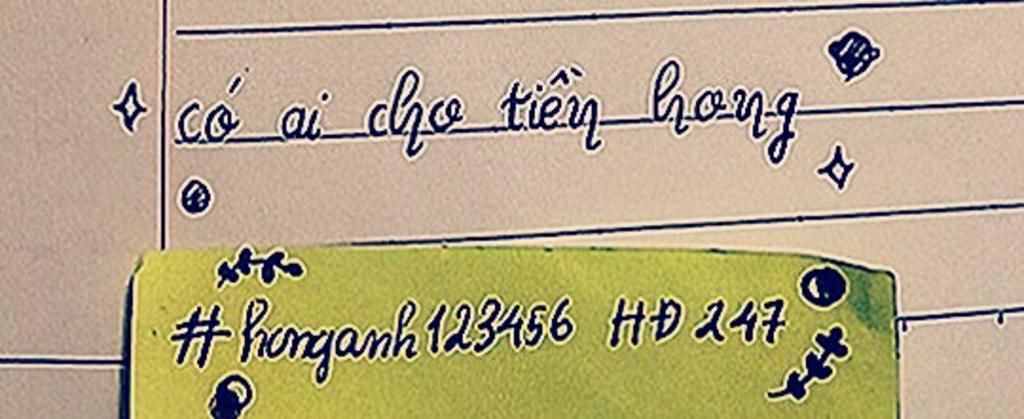 có ai cho tiền hong
#honganh123456 HĐ 247